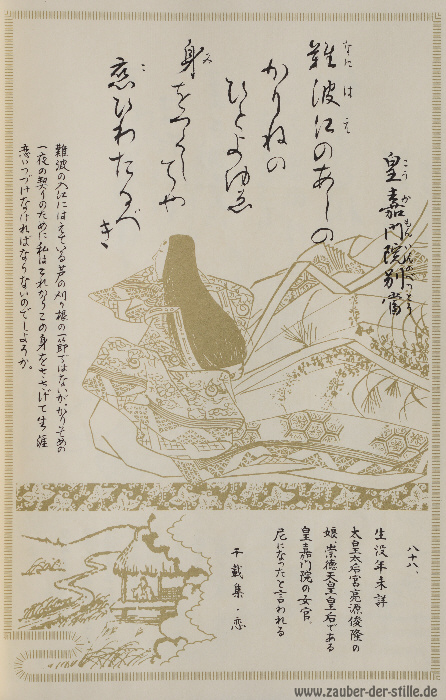 皇嘉門院別當
こうかもんいんのべっとう
難波江のあしの
なにはえ
かりねの
ひとよゆゑ
身をつくしてや
み
恋ひわたるべき
こ
難波の入江にはえている芦の刈り根の一節ではないが、かりそめの
一夜の契りのために私はこれからこの身をささげて生涯
恋いつづけなければならないのでしょうか。
八十八、
生没年未詳
太皇太后宮亮源俊隆の
娘、崇徳天皇皇后である
皇嘉門院の女官、
尼になったと言われる
千載集・恋
www.zauber-der-stille.de